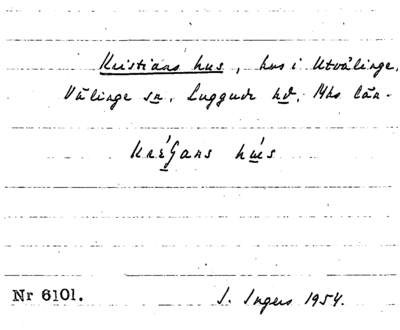 Kristians hus, hus i Utvälinge,
Välinge sn. Luggude hd, Mhs län.
hús
Nr 6101. I. Ingers 1954.